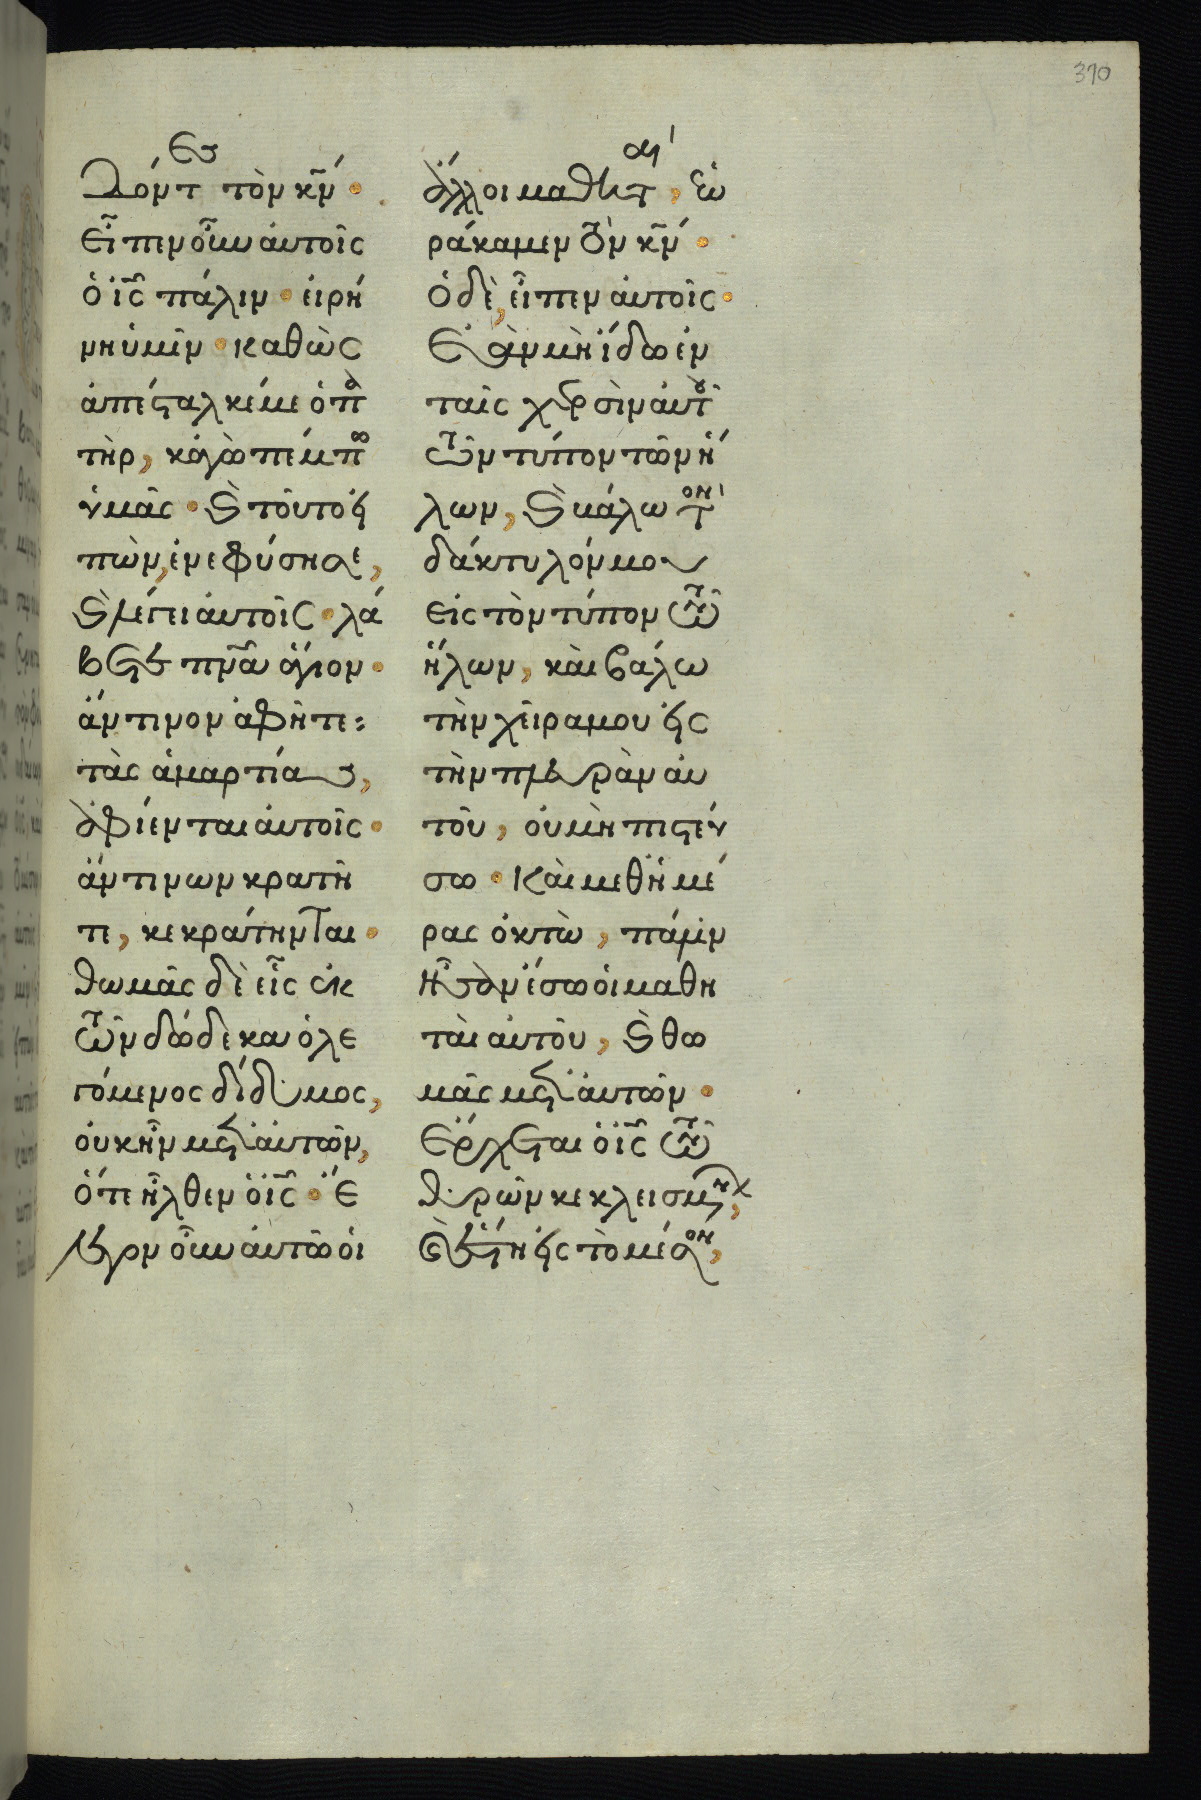 370
δόντες τὸν κ̅ν̅ ·
εἶπεν οὖν αὐτοῖς
ὁ ι̅ς̅ πάλιν · εἰρή
νη ὑμῖν · καθὼς
ἀπέσταλκέ με ὁ π̅
τὴρ, κἀγὼ πέμπω
ὑμᾶς · καὶ τοῦτο εἰ
πὼν, ἐνεφύσησε,
καὶ λέγει αὐτοῖς · λά
βετε π̅ν̅α̅ ἅγιον ·
ἄν τινον ἀφῆτε:
τὰς ἁμαρτίας,
ἀφίενται αὐτοῖς ·
ἄν τινων κρατῆ
τε, κεκράτηνται ·
θωμᾶς δὲ εἷς ἐκ
τῶν δώδεκα ὁ λε
γόμενος δίδυμος,
οὐκ ἦν μετ' αὐτῶν,
ὅτε ἦλθεν ὁ ι̅ς̅ · ἔ
λεγον οὖν αὐτῶ οἱ
ἄλλοι μαθηταὶ, ἑω
ράκαμεν τὸν κ̅ν̅ ·
Ὁ δὲ, εἶπεν αὐτοῖς ·
Ἐὰν μὴ ἴδω ἐν
ταῖς χερσὶν αὐτοῦ
τὸν τύπον τῶν ἥ
λων, καὶ βάλω τὸν
δάκτυλόν μου
εἰς τὸν τύπον τῶν
ἥλων, καὶ βάλω
τὴν χεῖρα μου εἰς
τὴν πλευρὰν αὐ
τοῦ, οὐ μὴ πιστεύ
σω · Καὶ μεθ' ἡμέ
ρας ὀκτὼ, πάλιν
ἦσαν ἔσω οἱ μαθη
ταὶ αὐτοῦ, καὶ θω
μᾶς μετ' αὐτῶν ·
Ἔρχεται ὁ ι̅ς̅ τῶν
θυρῶν κεκλεισμένων,
καὶ ἔστη εἰς τὸ μέσον,